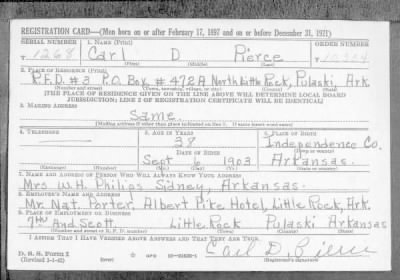 REGISTRATION CARD—(Men born on or after February 17, 1897 and on or before December 31, 1921)
SERIAL NUMBER 1. NAME (Print) ORDER NUMBER
T 1268 Carl D Pierce T
(First) (Middle) (Last)
2. PLACE OF RESIDENCE (Print)
R.F.D. #3 P.O. Box #472A North Little Rock, Pulaski, Ark.
(Number and street) (Town, township, village, or city) (County) (State)
[THE PLACE OF RESIDENCE GIVEN ON THE LINE ABOVE WILL DETERMINE LOCAL BOARD
JURISDICTION; LINE 2 OF REGISTRATION CERTIFICATE WILL BE IDENTICAL]
3. MAILING ADDRESS
Same.
[Mailing address if other than place indicated on line 2. If same insert word same]
4. TELEPHONE 5. AGE IN YEARS 6. PLACE OF BIRTH
38 Independence Co.
DATE OF BIRTH (Town or county)
Sept 6 1903 Arkansas.
(Exchange) (Number) (Mo.) (Day) (Yr.) (State or country)
7. NAME AND ADDRESS OF PERSON WHO WILL ALWAYS KNOW YOUR ADDRESS
Mrs W.H. Philips Sidney, Arkansas.
8. EMPLOYER'S NAME AND ADDRESS
Mr. Nat. Porter, Albert Pike Hotel, Little Rock, Ark.
9. PLACE OF EMPLOYMENT OR BUSINESS
7th And Scott Little Rock Pulaski Arkansas
(Number and street or R. F. D. number) (Town) (County) (State)
I AFFIRM THAT I HAVE VERIFIED ABOVE ANSWERS AND THAT THEY ARE TRUE.
D. S. S. Form 1
(Revised 1-1-42) (over) Carl D. Pierce